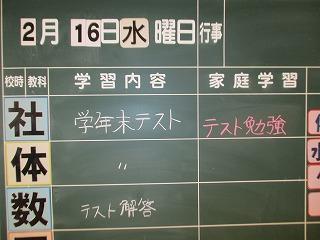 2月 16日水曜日行事
校時 教科 学習内容 家庭学習
社 学年末テスト テスト勉強
体 〃
数 テスト解答